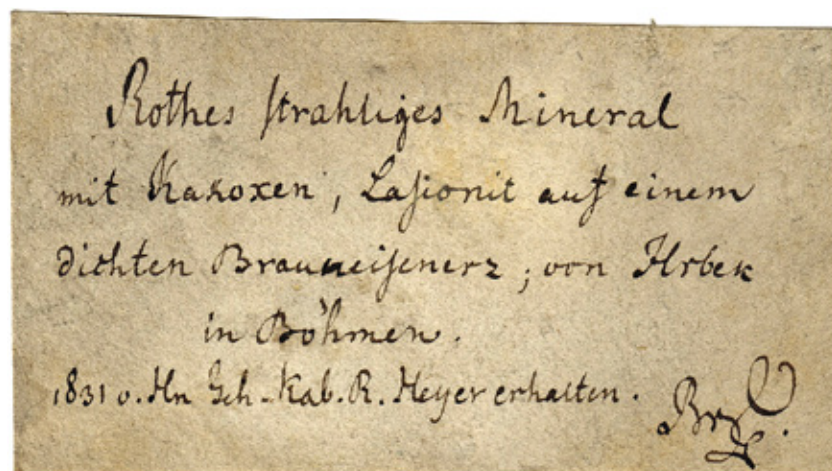 Rothes strahliges Mineral
mit Kakoxen, Lasionit auf einem
dichten Brauneisenerz; von Hrbek
in Böhmen.
1831 v. Hn Geh. Kab. R. Heyer erhalten.